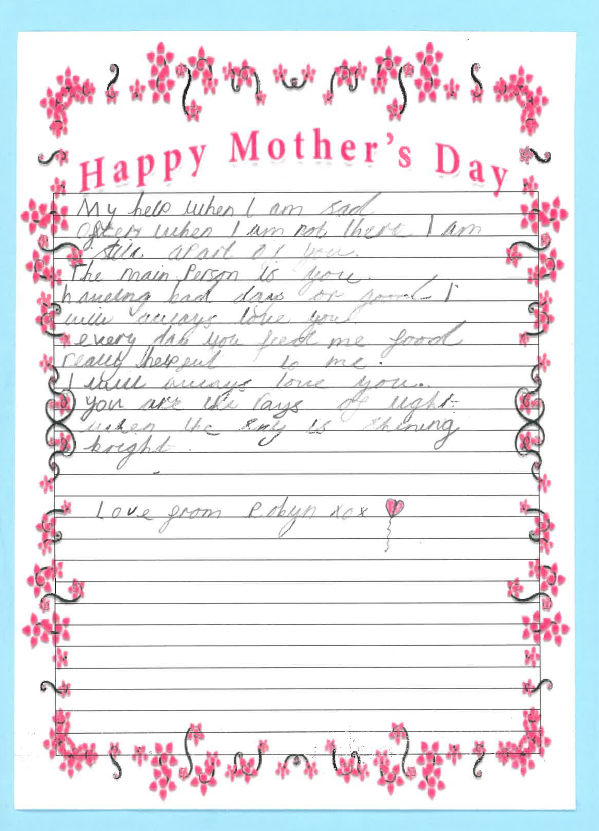 Happy Mother's Day
My help when I am sad
often when I am not there I am
still apart of you.
The main Person is you.
haveing bad days or good I
will always love you
every day you feed me food
really helpful to me.
I will always love you.
you are the rays of light
when the sky is shining
bright.
Love from Robyn xox